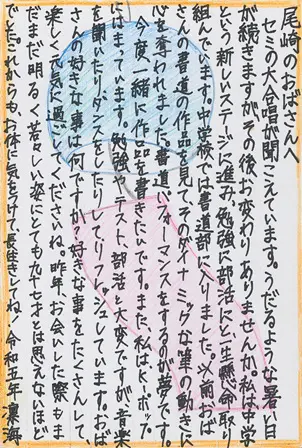 尾崎のおばさんへ
セミの大合唱が聞こえています。うだるような暑い日
が続きますがその後お変わりありませんか。私は中学
という新しいステージに進み、勉強に部活にと一生懸命取り
組んでいます。中学校では書道部に入りました。以前おば
さんの書道の作品を見て、そのダイナミックな筆の動きに
心を奪われました。書道パフォーマンスをするのが夢です。
今度一緒に作品を書きたいです。また、私はK-ポップ
にはまっています。勉強やテスト、部活と大変ですが、音楽
を聞いたりダンスしたりしてリフレッシュしています。おば
さんの好きな事は何ですか？好きな事をたくさんして、
楽しく元気に過ごしてくださいね。昨年、お会いした際もま
だまだ明るく若々しい姿にとても九十七才とは思えないほど
でした。これからも、お体に気をつけて、長生きしてね。令和五年